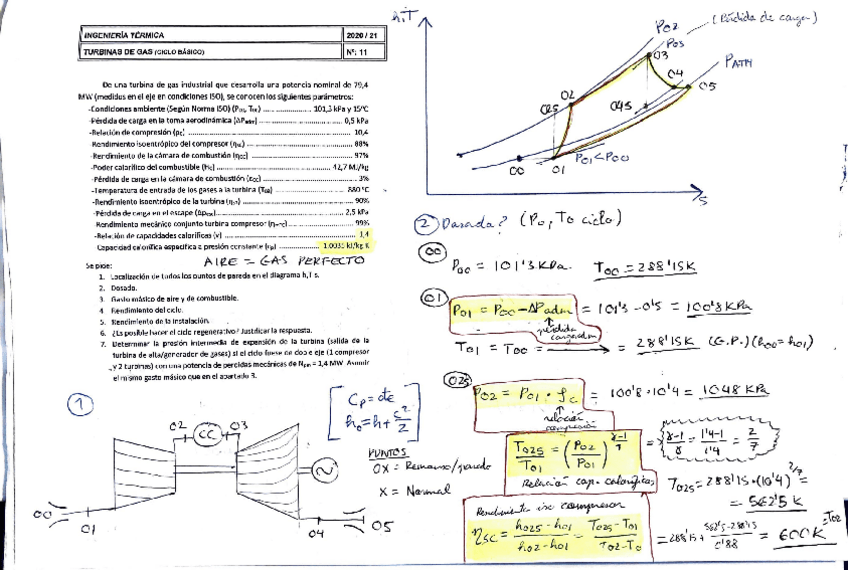 INGENIERÍA TÉRMICA 2020 / 21
TURBINAS DE GAS (CICLO BÁSICO) Nº: 11
De una turbina de gas industrial que desarrolla una potencia nominal de 79,4
MW (medidos en el eje en condiciones ISO), se conocen los siguientes parámetros:
-Condiciones ambiente (Según Norma ISO) 101,3 kPa y 15ºC
-Pérdida de carga en la toma aerodinámica 0,5 kPa
-Relación de compresión 10,4
-Rendimiento isoentrópico del compresor 88%
-Rendimiento de la cámara de combustión 97%
-Poder calorífico del combustible 42,7 MJ/kg
-Pérdida de carga en la cámara de combustión 3%
-Temperatura de entrada de los gases a la turbina 880 ºC
-Rendimiento isoentrópico de la turbina 90%
-Pérdida de carga en el escape 2,5 kPa
-Rendimiento mecánico conjunto turbina compresor 99%
-Relación de capacidades caloríficas (γ) 1,4
-Capacidad calorífica específica a presión constante (cp) kJ/kg K
AIRE = GAS PERFECTO
Se pide:
1. Localización de todos los puntos de parada en el diagrama h,T s.
2. Dosado.
3. Gasto másico de aire y de combustible.
4. Rendimiento del ciclo.
5. Rendimiento de la instalación.
6. ¿Es posible hacer el ciclo regenerativo? Justificar la respuesta.
7. Determinar la presión intermedia de expansión de la turbina (salida de la
turbina de alta/generador de gases) si el ciclo fuese de doble eje (1 compresor
y 2 turbinas) con una potencia de pérdidas mecánicas de = 1,4 MW. Asumir
el mismo gasto másico que en el apartado 3.
1
Cp = cte
h0 = h + c²/2
PUNTOS
0X = Remanso/parado
X = Normal
02 CC 03
00 01 04 05
h,T
P02
(Pérdida de carga)
P03
03
04
PATM
05
02
02S
04S
00 01
P01 < P00
s
2 Dosado? (P0, T0 ciclo)
00
P00 = 101'3 KPa. T00 = 288'15K
01
P01 = P00 - ΔPadm = 101'3 - 0'5 = 100'8 KPa
pérdida
carga adm
T01 = T00 = 288'15K (G.P.) (h00 = h01)
02S
P02 = P01 · ρc = 100'8 · 10'4 = 1048 KPa
relación
compresión
T02S/T01 = (P02/P01)^(γ-1/γ) = γ-1/γ = 1'4-1/1'4 = 2/7
Relación cap. caloríficas
T02S = 288'15 · (10'4)^2/7 =
= 562'5 K
Rendimiento iso compresor
ηSC = h02S - h01/h02 - h01 = T02S - T01/T02 - T0 = 288'15 + 562'5 - 288'15/0'88 = 600K = T02